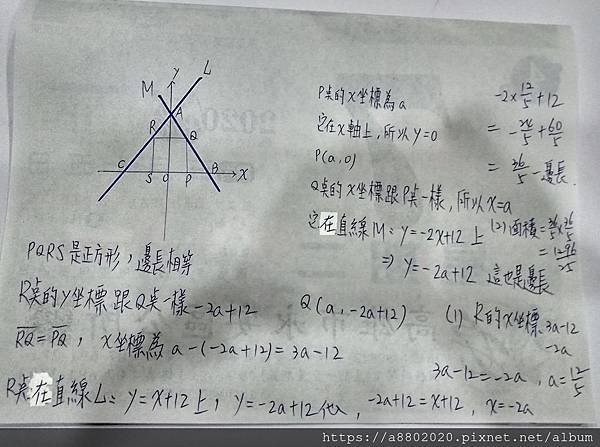 L
M
y
A
R
Q
C
S
O
P
B
X
P点的X坐標為a
它在X軸上,所以y=0
P(a,0)
Q点的X坐標跟P点一樣,所以X=a
它在直線M: y=-2x+12 上
⇒ y=-2a+12 這也是邊長
-2×12/5+12
= -24/5+60/5
= 36/5 - 邊長.
(2) 面積=36/5×36/5
=1296/25
PQRS是正方形,邊長相等
R点的y坐標跟Q点一樣-2a+12
Q(a,-2a+12)
(1) R的X坐標 3a-12
-2a
RQ=PQ, X坐標為a-(-2a+12)=3a-12
3a-12=-2a, a=12/5
R点在直線L: y=x+12上, y=-2a+12代入, -2a+12=x+12, x=-2a
https://a8802020.pixnet.net/album